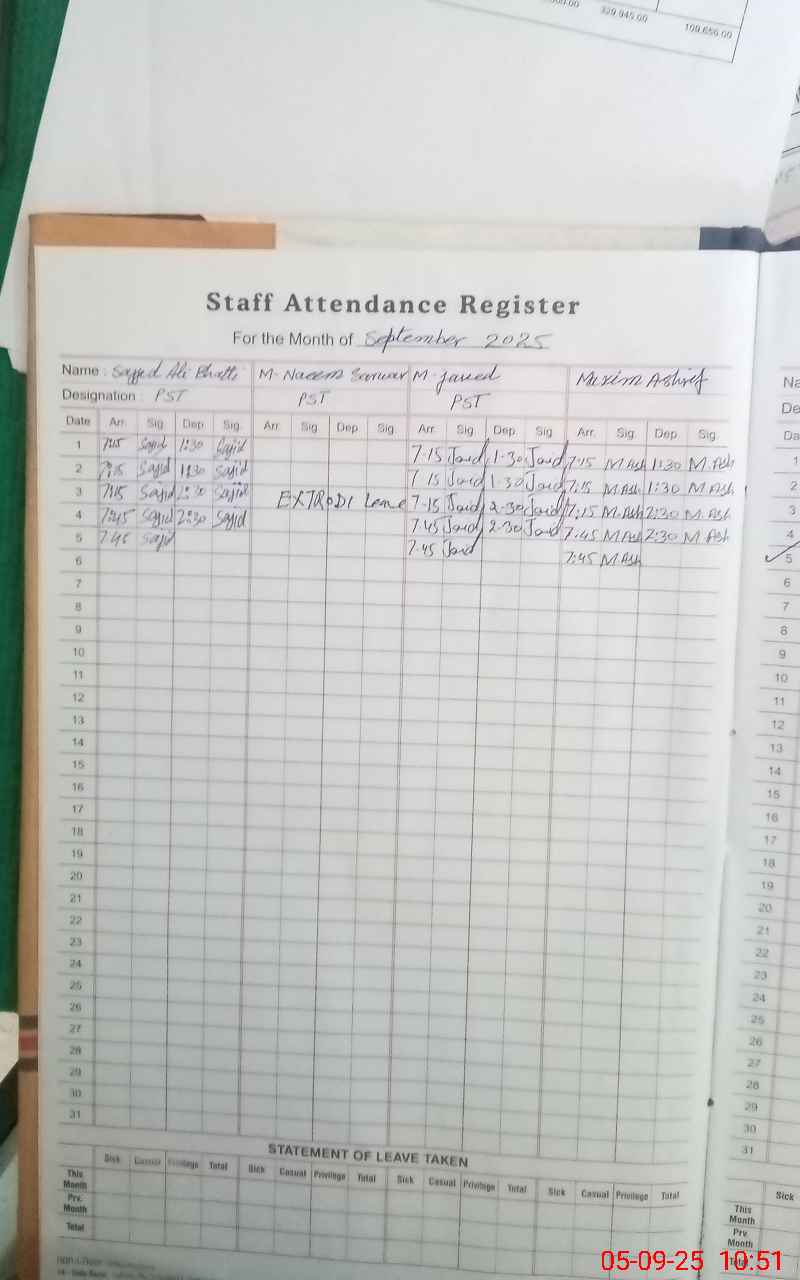 329,945.00 109,656.00
Staff Attendance Register
For the Month of September 2025
Name : Sajjed Ali Bhatti M. Naeem Sarwar M. Javed Marim Ashrif
Designation : PST PST PST
Date Arr. Sig. Dep. Sig. Arr. Sig. Dep. Sig. Arr. Sig. Dep. Sig. Arr. Sig. Dep. Sig.
1 7:15 Sajid 1:30 Sajid 7-15 Javid 1-30 Javid 7:15 M.Ash 1:30 M.Ash
2 7:15 Sajid 1:30 Sajid 7 15 Javid 1-30 Javid 7:15 M.Ash 1:30 M.Ash
3 7:15 Sajid 2:30 Sajid EXTRODI Leave 7-15 Javid 2-30 Javid 7:15 M.Ash 2:30 M.Ash
4 7:45 Sajid 2:30 Sajid 7.45 Javid 2-30 Javid 7:45 M.Ash 2:30 M.Ash
5 7:45 Sajid 7.45 Javid 7:45 M.Ash
6
7
8
9
10
11
12
13
14
15
16
17
18
19
20
21
22
23
24
25
26
27
28
29
30
31
STATEMENT OF LEAVE TAKEN
Sick Casual Privilege Total Sick Casual Privilege Total Sick Casual Privilege Total Sick Casual Privilege Total
This Month
Prv. Month
Total
Na
De
Da
1
2
3
4
5
6
7
8
9
10
11
12
13
14
15
16
17
18
19
20
21
22
23
24
25
26
27
28
29
30
31
Sick
This Month
Prv. Month
Total
05-09-25 10:51